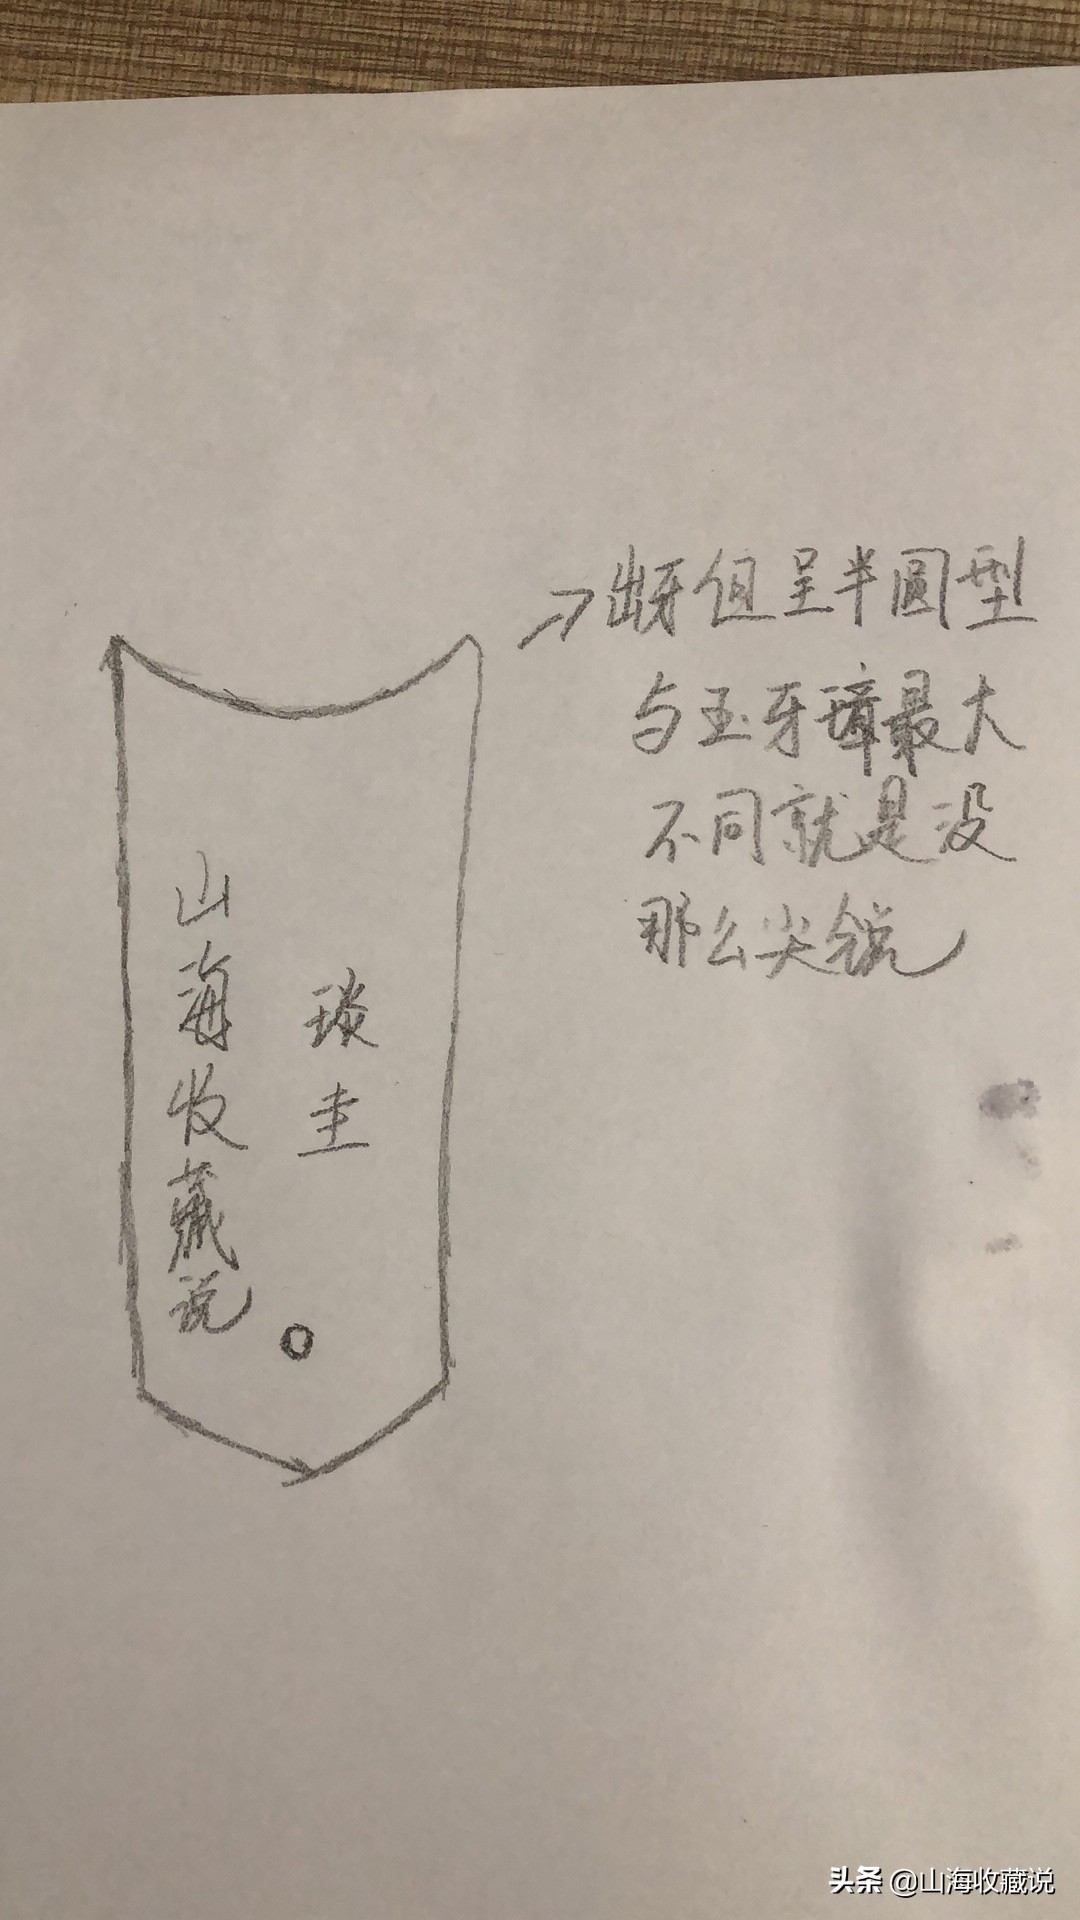 出牙但呈半圆型
与玉牙璋最大
不同就是没
那么尖锐
琰圭
山海收藏说
头条 @山海收藏说